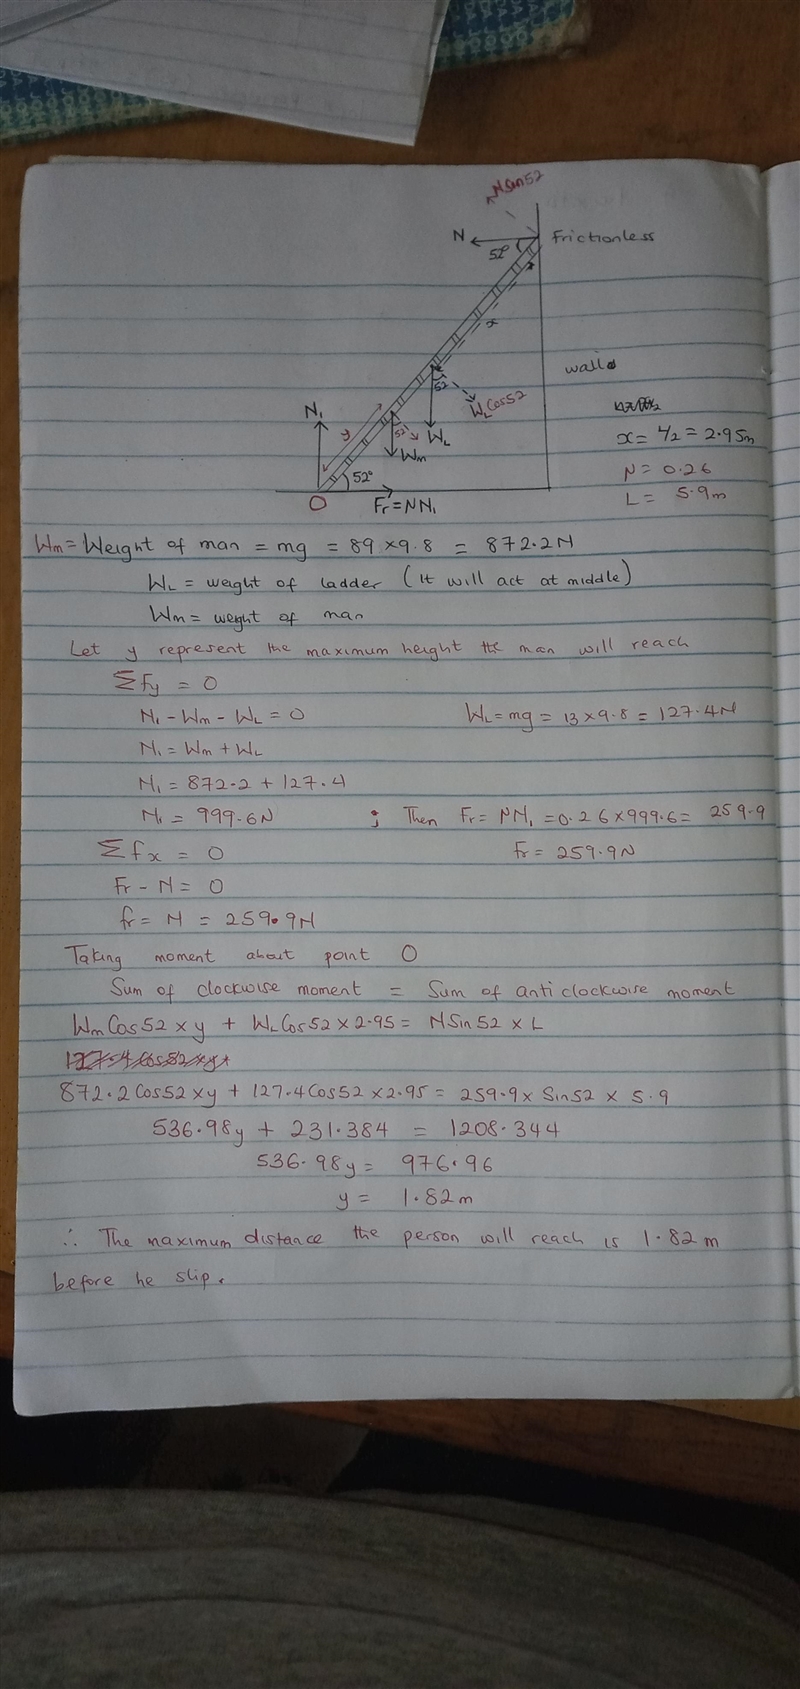 NSin52
N
Frictionless
52°
x
wall
52
WLCos52
N1
y
52
WL
x = L/2 = 2.95m
Wm
52°
μ = 0.26
L = 5.9m
O
Fr = μN1
Wm = Weight of man = mg = 89 × 9.8 = 872.2N
WL = weight of ladder (It will act at middle)
Wm = weight of man
Let y represent the maximum height the man will reach
ΣFy = 0
N1 - Wm - WL = 0 WL = mg = 13 × 9.8 = 127.4N
N1 = Wm + WL
N1 = 872.2 + 127.4
N1 = 999.6N ; Then Fr = μN1 = 0.26 × 999.6 = 259.9
Σfx = 0 Fr = 259.9N
Fr - N = 0
fr = N = 259.9N
Taking moment about point O
Sum of clockwise moment = Sum of anticlockwise moment
WmCos52 × y + WLCos52 × 2.95 = NSin52 × L
872.2Cos52 × y + 127.4Cos52 × 2.95 = 259.9 × Sin52 × 5.9
536.98y + 231.384 = 1208.344
536.98y = 976.96
y = 1.82m
∴ The maximum distance the person will reach is 1.82m
before he slip.